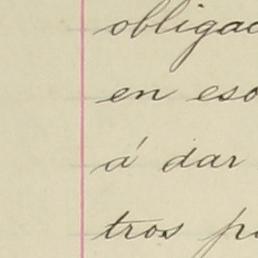 obligac
en eso
á dar
tros p